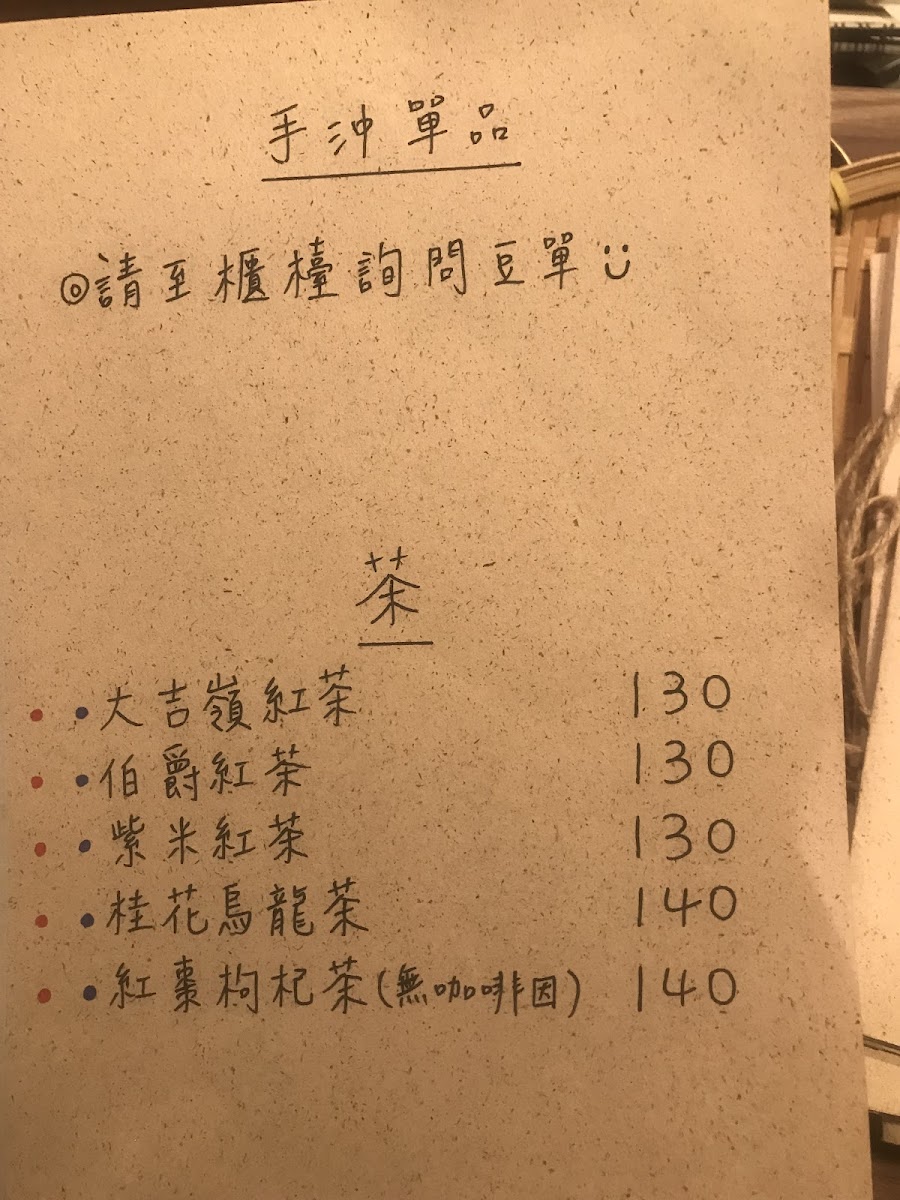 手沖單品
◎請至櫃檯詢問豆單
茶
大吉嶺紅茶 130
伯爵紅茶 130
紫米紅茶 130
桂花烏龍茶 140
紅棗枸杞茶(無咖啡因) 140